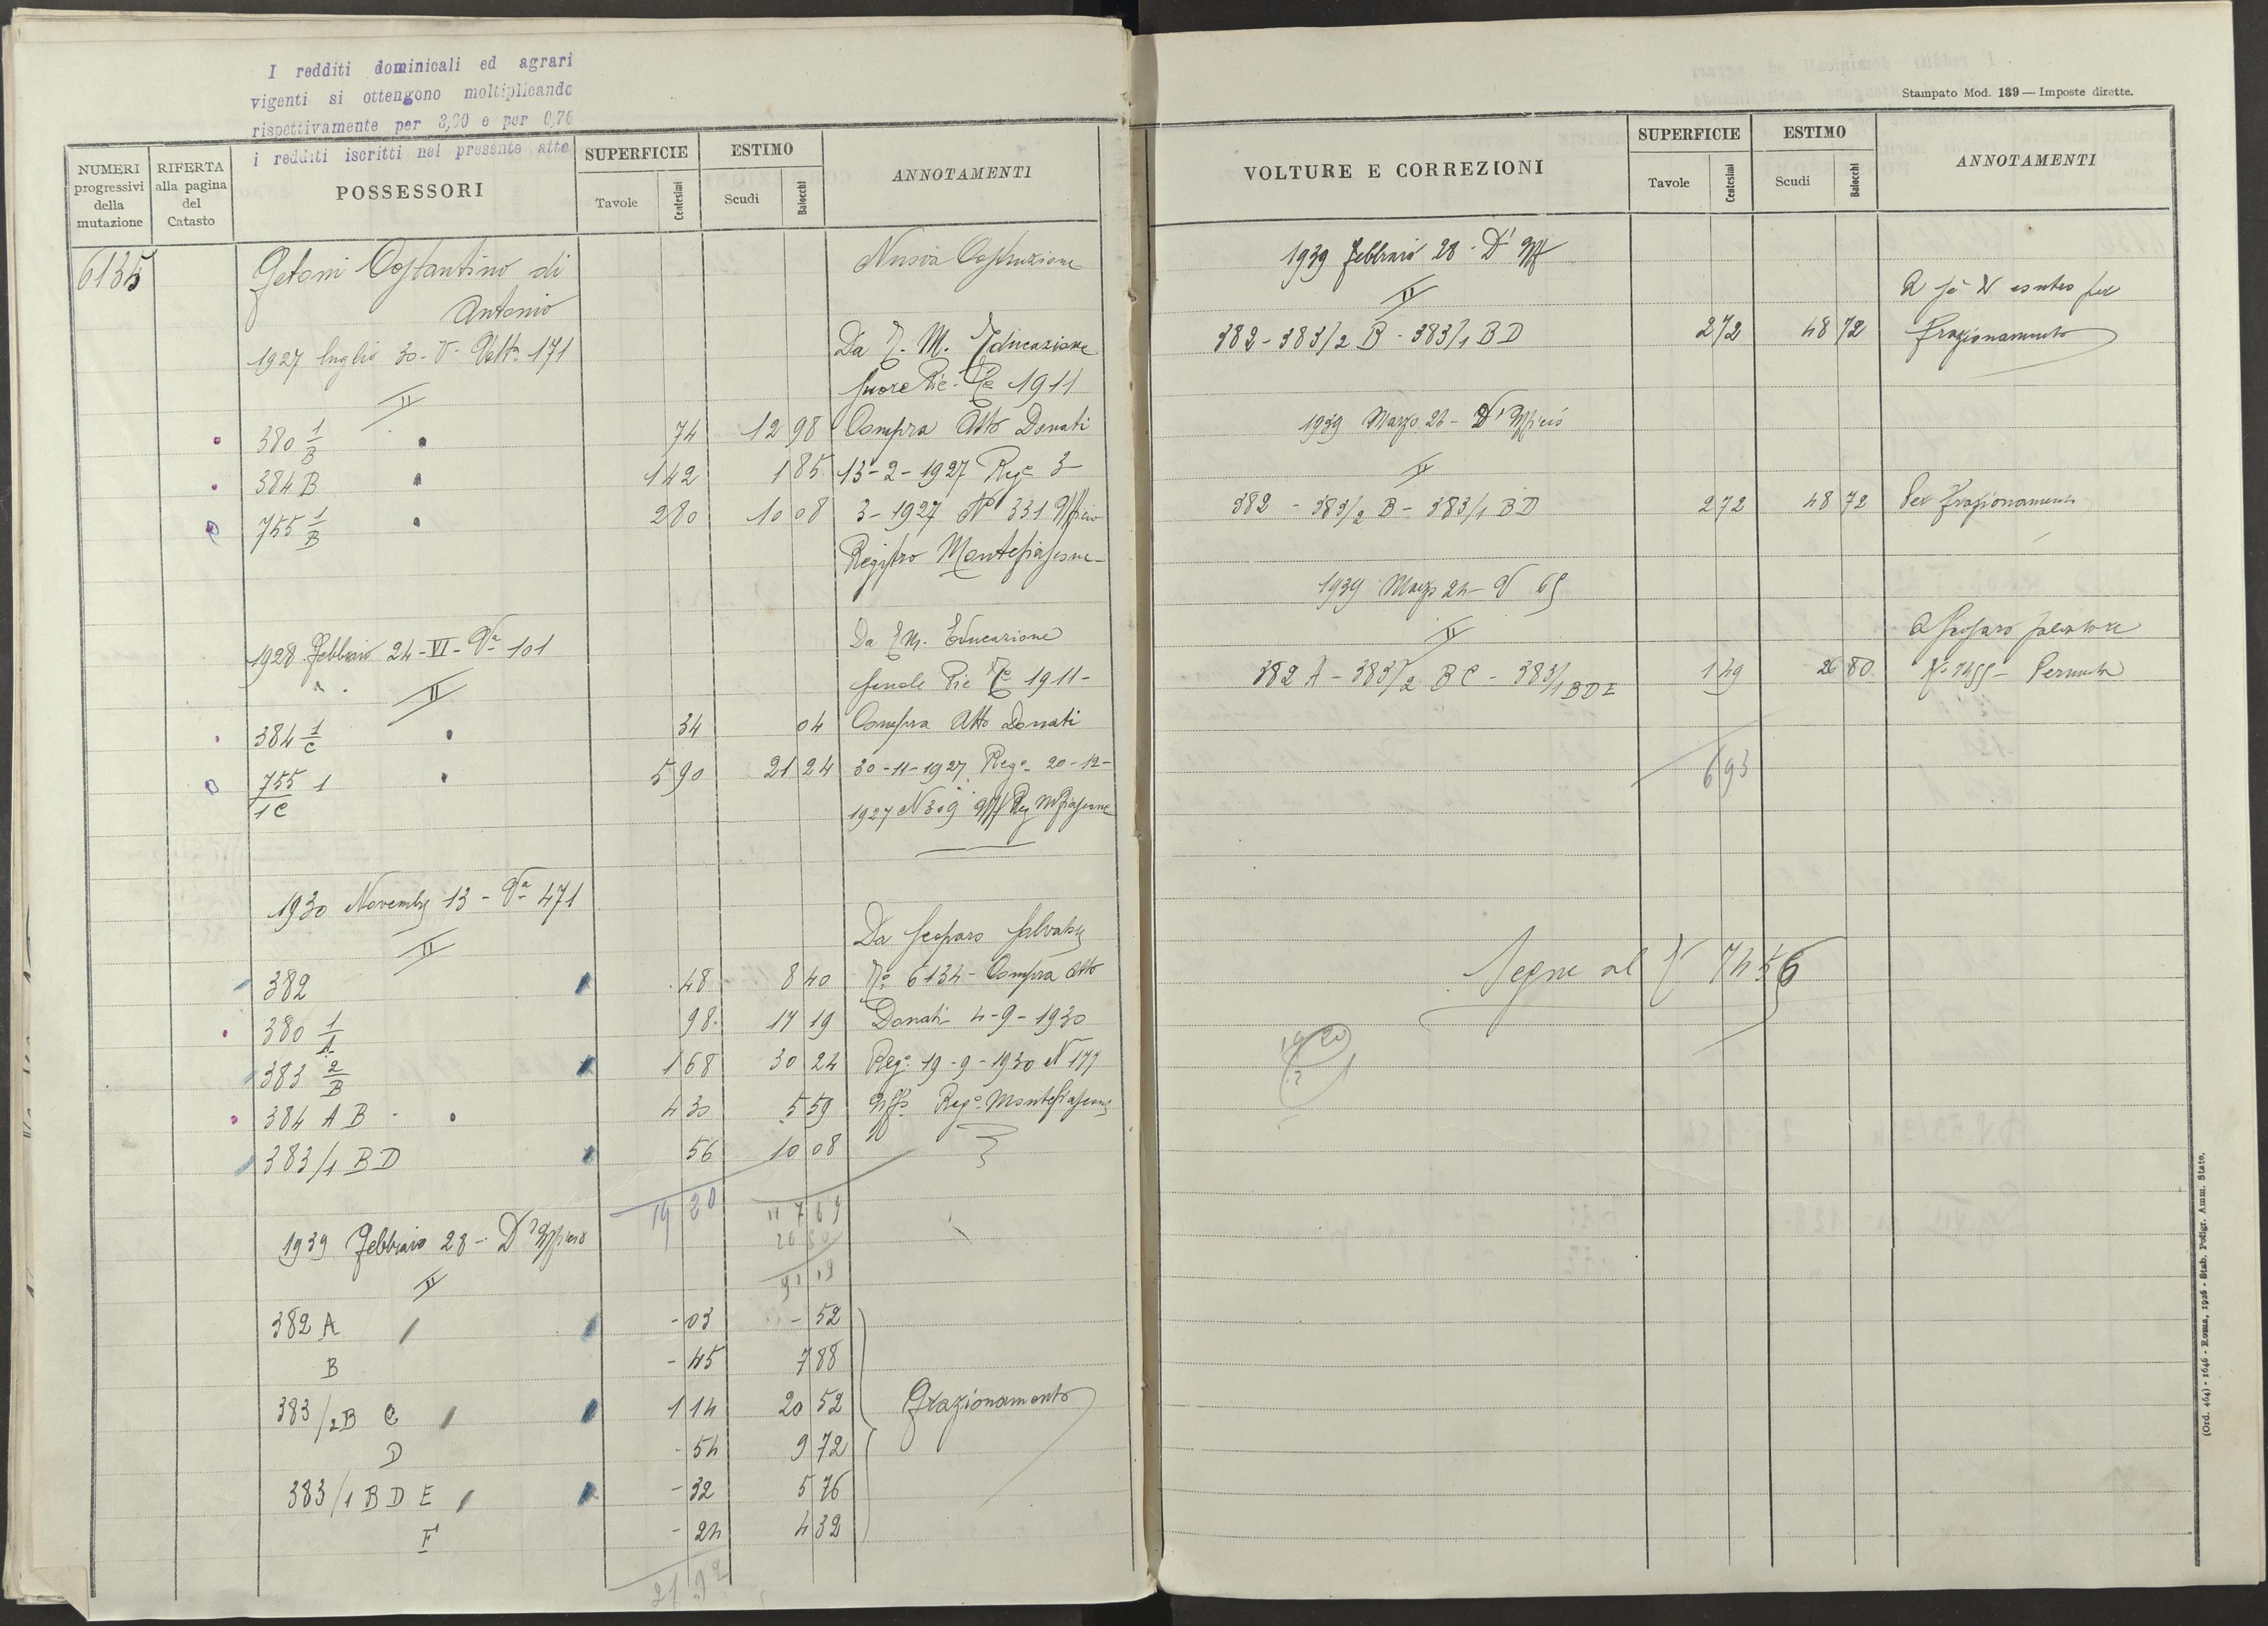 I redditi dominicali ed agrari
vigenti si ottengono moltiplicando
rispettivamente per 3,60 e per 0,76
i redditi iscritti nel presente atto
NUMERI progressivi della mutazione
RIFERTA alla pagina del Catasto
POSSESSORI
SUPERFICIE
Tavole Centesimi
ESTIMO
Scudi Baiocchi
ANNOTAMENTI
6135 Getoni Costantino di Nuova Costruzione
Antonio
1927 luglio 30 - V - Volta 171 Da E. M. Educazione
II fuore Pie 1911
380 1/B 74 12 98 Compra Atto Donati
384 B 1 42 1 85 13-2-1927 Rego 3-
755 1/B 2 80 10 08 3-1927 N° 331 Ufficio
Registro Montefiascone
1928 Febbraio 24 - VI - Va 101 Da E.M. Educazione
II Pie 1911-
384 1/C 34 04 Compra Atto Donati
755/1C 1 5 90 21 24 30-11-1927 Rego 20-12-
1927 N 309 Uff Reg Mfiascone
1930 Novembre 13 - Va 471
II Da Gesparo Salvatore
382 48 8 40 No 6134 - Compra Atto
380 1/A 98 17 19 Donati 4-9-1930
383 2/B 1 68 30 24 Rego 19-9-1930 N 177
384 A B 4 30 5 59 Uffo Rego Montefiascone
383/1 B D 56 10 08
19 20 117 69
26 80
1939 Febbraio 28 - D'Ufficio
II 91 19
382 A - 03 - 52
B - 45 7 88
383/2 B C 1 14 20 52 Frazionamento
D - 54 9 72
383/1 B D E - 32 5 76
F - 24 4 32
21 92
Stampato Mod. 139 — Imposte dirette.
VOLTURE E CORREZIONI
SUPERFICIE
Tavole Centesimi
ESTIMO
Scudi Baiocchi
ANNOTAMENTI
1939 Febbraio 28 - D'Uff
II A se per
382 - 383/2 B - 383/1 B D 2 72 48 72 frazionamento
1939 Marzo 21 - D'Ufficio
II
382 - 383/2 B - 383/1 B D 2 72 48 72 Per frazionamento
1939 Marzo 24 - V 65
II A Gesparo Salvatore
382 A - 383/2 B C - 383/1 B D E 1 49 26 80 No 7455 - Permuta
6 93
Segue al N 7456
19 20
(Ord. 464) - 1646 - Roma, 1926 - Stab. Poligr. Amm. Stato.